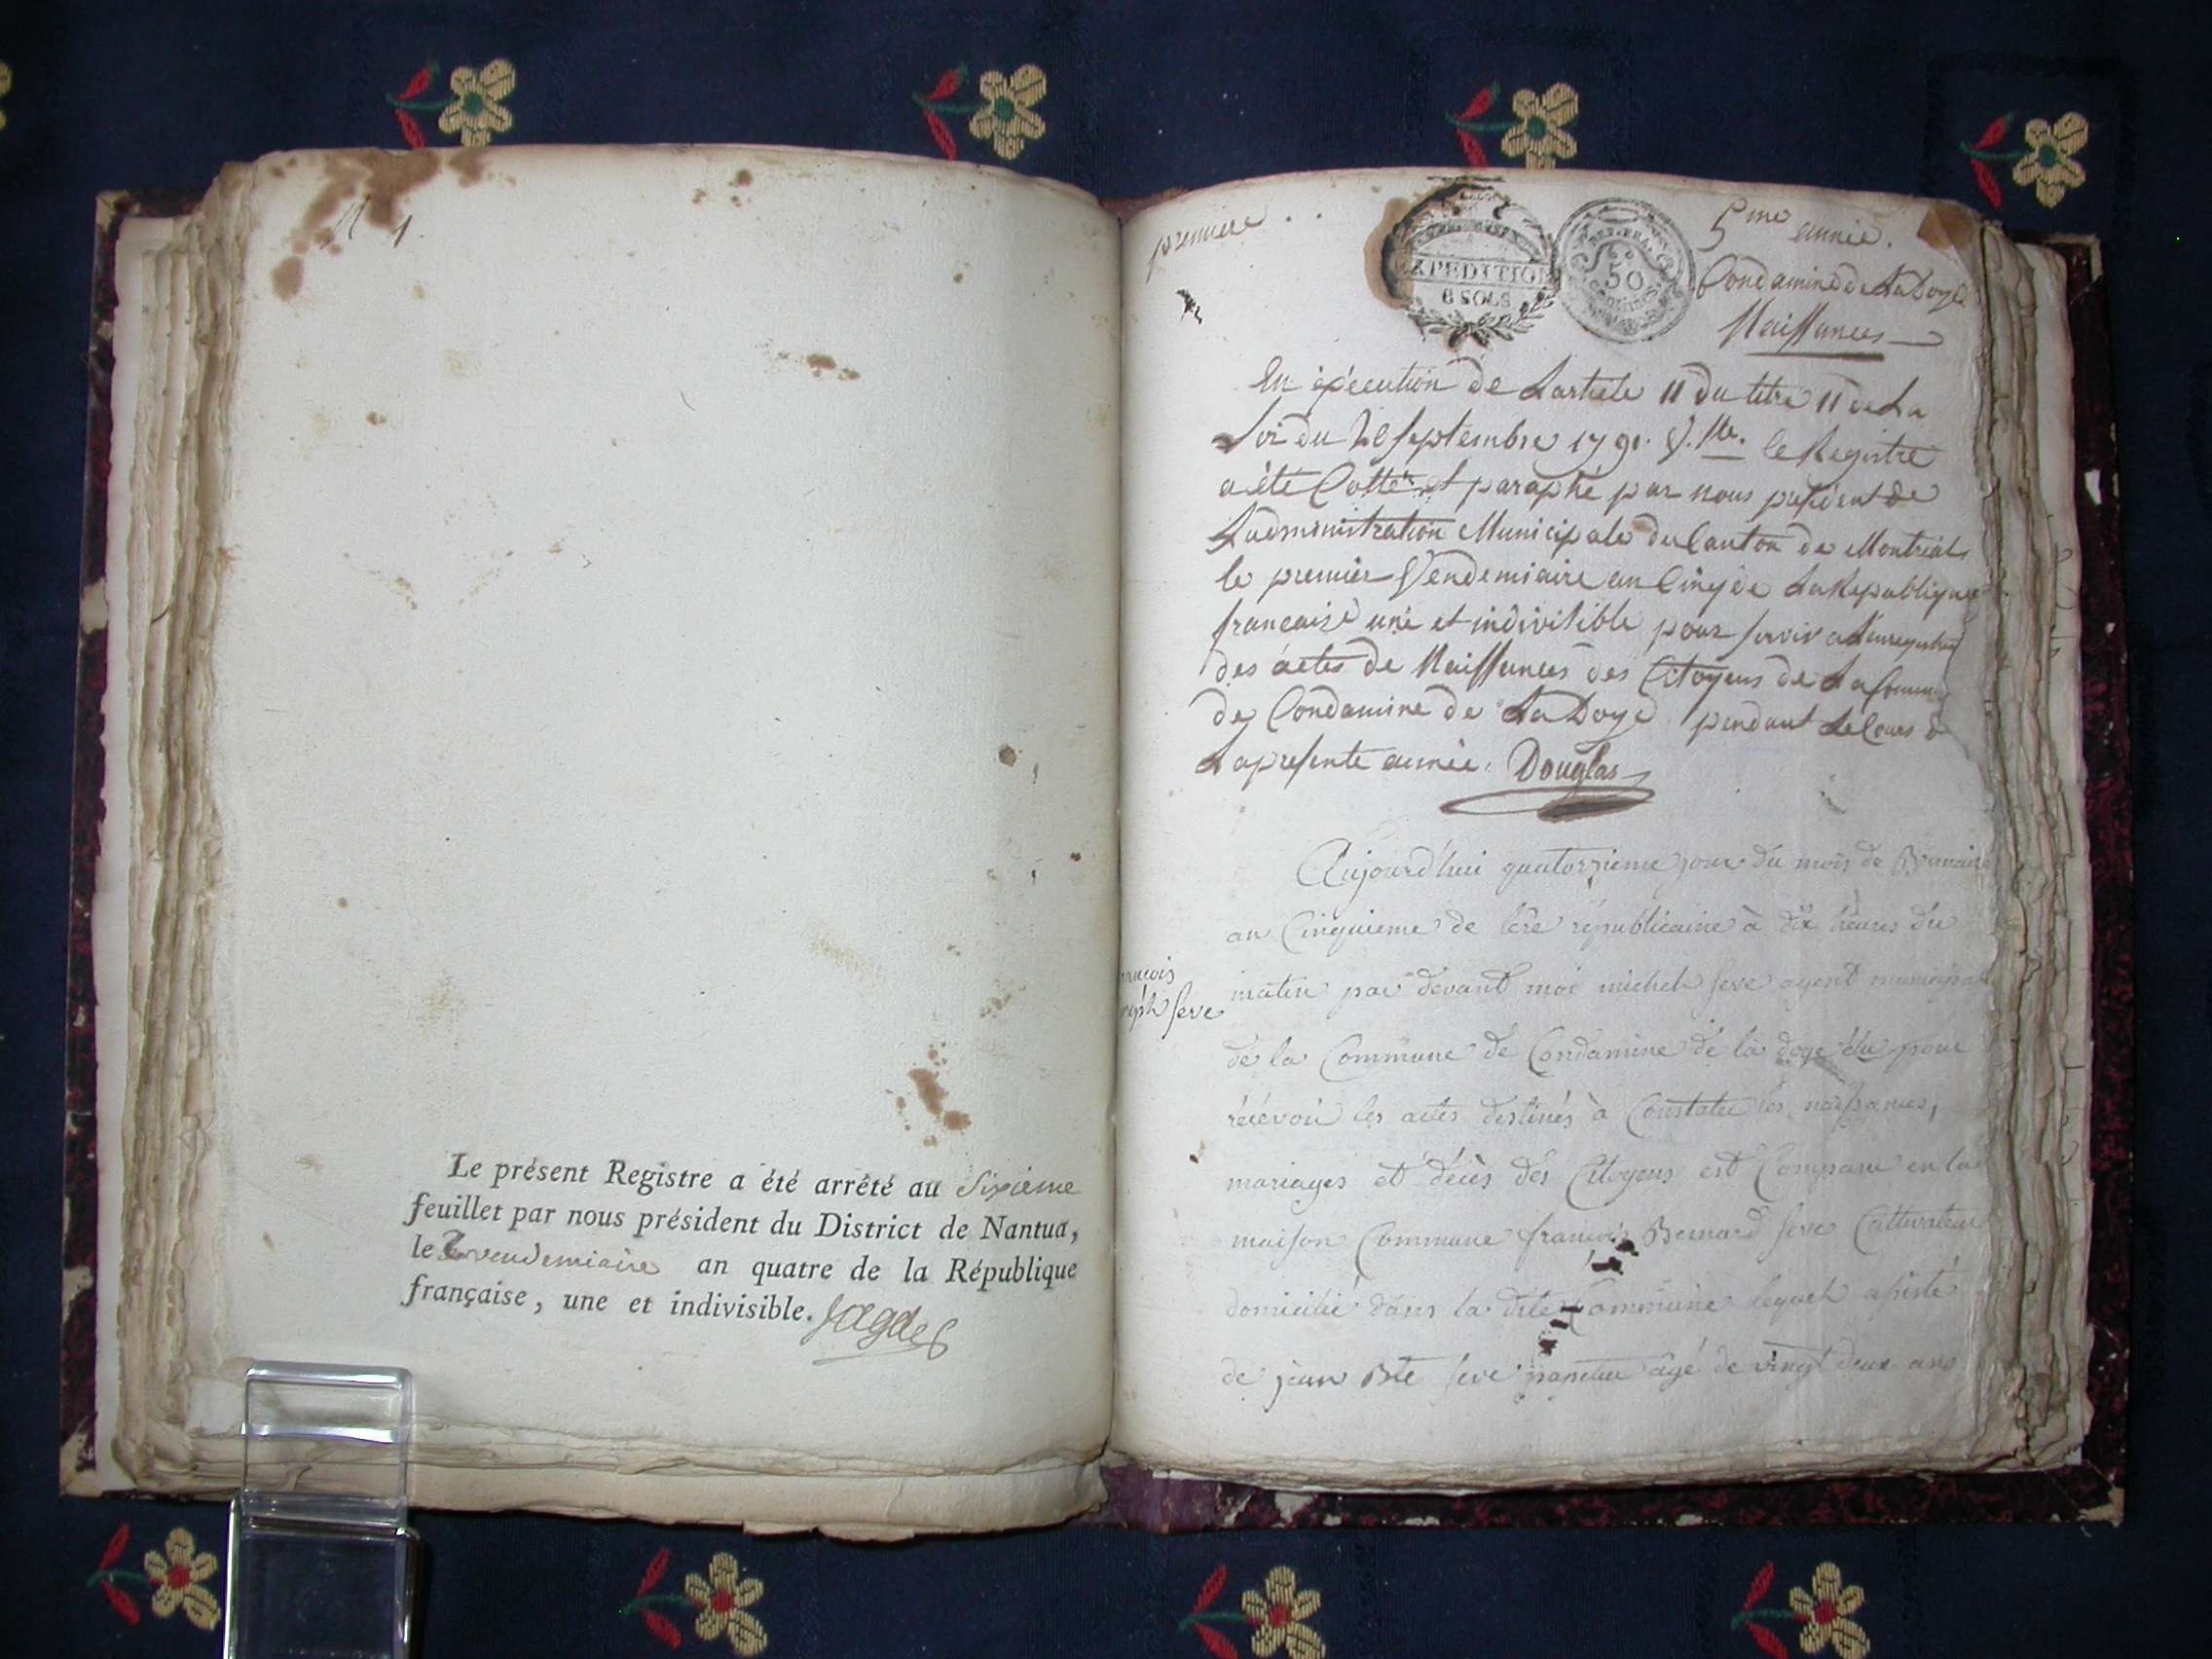 Le présent Registre a été arrêté au Sixieme
feuillet par nous président du District de Nantua,
le vendemiaire an quatre de la République
française, une et indivisible.
premiere
EXPEDITION
6 SOLS
REP. FRA
50
centimes
5me année.
Condamine de La Doye
Naissances
En éxécution de Larticle 11 du titre 11 de La
Loi du 20 Septembre 1791. V. Ste. le Registre
a été Cotté et paraphé par nous president de
Ladministration Municipale du Canton de Montreal
le premier Vendemiaire an Cinq de La Republique
francaise une et indivisible pour servir a
des actes de Naissances des Citoyens de La
de Condamine de La Doye pendant Le Cours de
La presente année. Douglas
Aujourd'hui quatorzieme jour du mois de Brumaire
an Cinquieme de l'ère républicaine à dix heures du
matin par devant moi michel seve agent municipal
de la Commune de Condamine de la doye élu pour
récévoir les actes destinés à Constater les naissances,
mariages et décès des Citoyens est Comparu en la
maison Commune francois Bernard seve Cultivateur
domicilié dans la dite Commune lequel assisté
de jean Bte seve papetier âgé de vingt deux ans
ancois
seph seve